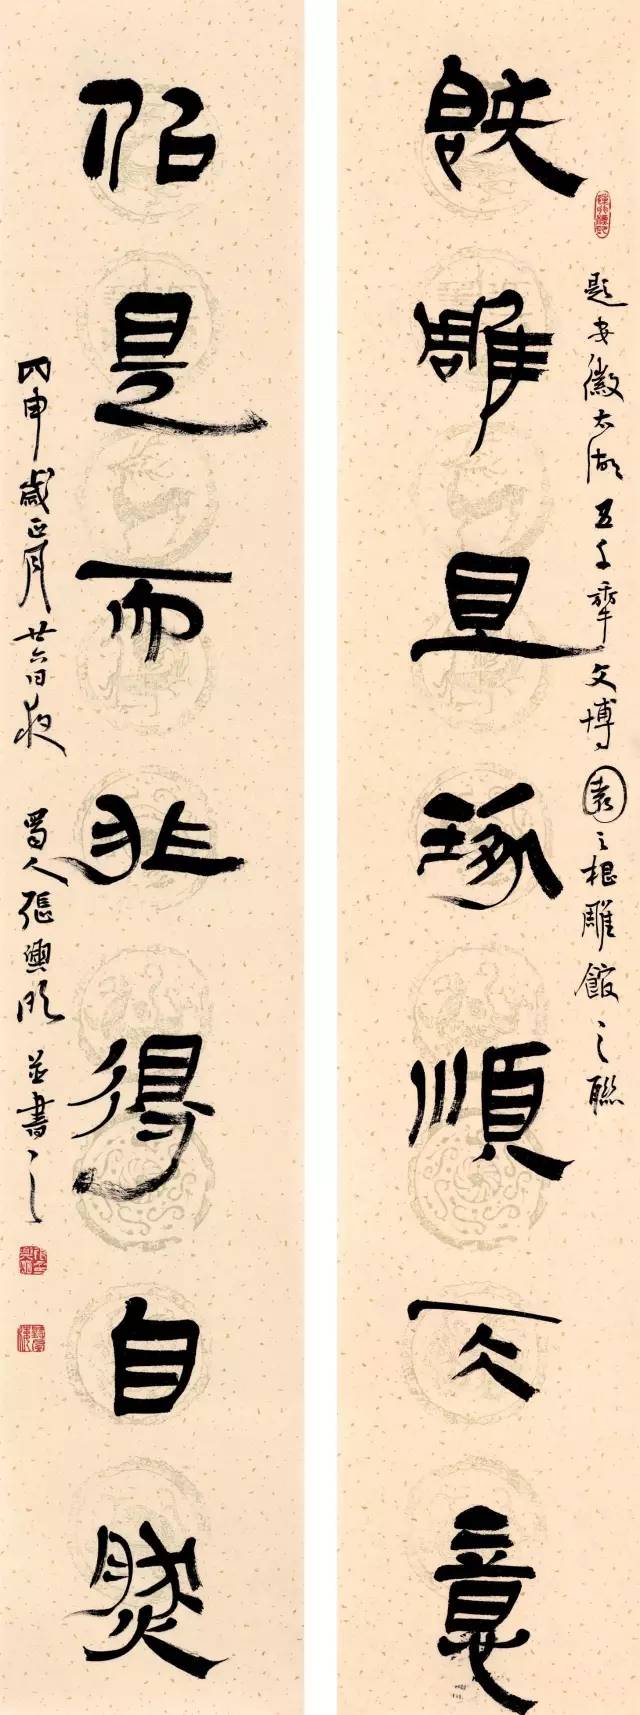 題安徽太湖五千年文博園之根雕館之聯
既雕且琢順天意
似是而非得自然
丙申歲正月廿六日夜 蜀人張興明並書之